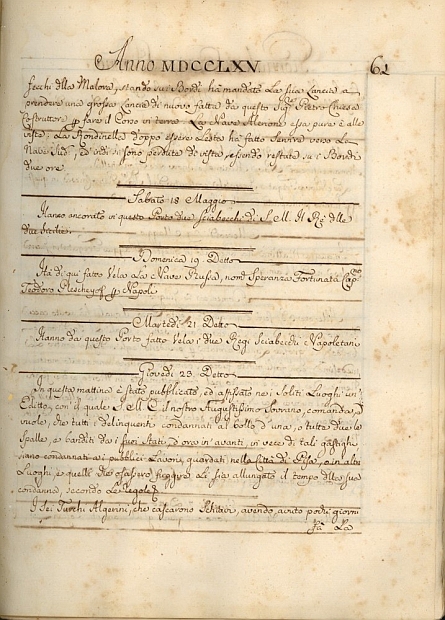 Anno MDCCLXV
62
secchi della Malora, stando sui Bordi ha mandato La sua Lancia a
prendere una grossa Lancia di nuovo fatta da questo Sig.r Pietro
Costruttore p fare il Corso in terra. La Nave Alerione essa pure è alla
vista; La Rondinella doppo essere Lesta ha fatto Servire verso La
Nave Sud, ed indi si sono perdute di vista, essendo restate su i Bordi
due ore
Sabato 18 Maggio
Hanno ancorato in questo Porto due Sciabecchi di S. M. Il Rè delle
due Sicilie.
Domenica 19 Detto
Hà di qui fatto Vela La Nave Russa, nom.a Speranza Fortunata Cap.no
Teodoro Plescheyoff p Napoli
Martedì 21 Detto
Hanno da questo Porto fatto Vela i due Regi Sciabecchi Napoletani
Giovedì 23 Detto
In questa mattina è stato pubblicato, ed affissato ne i Soliti Luoghi un
Editto, con il quale S. A. R. il nostro Augustissimo Sovrano, comanda, e
vuole, che tutti i delinquenti condannati al bollo d'una, o tutte due le
Spalle, e banditi da i suoi Stati, d'ora in avanti, in vece di tali gastighi
siano condannati a i pubblici Lavori, guardati nella Città di Pisa, o in altri
Luoghi, e quelli che osassero fuggire Li sia allungato il tempo della sua
condanna, secondo Le regole
I sei Turchi Algerini, che cascarono Schiavi, avendo, avuto pochi giorni
fà La